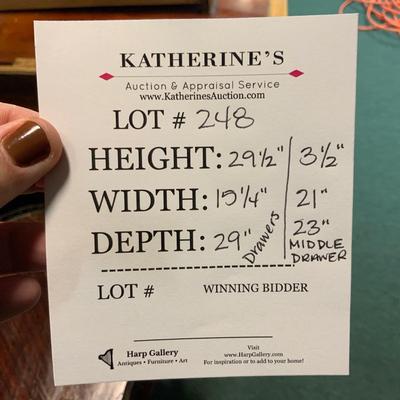 KATHERINE'S
Auction & Appraisal Service
www.KatherinesAuction.com
LOT # 248
HEIGHT: 29½" 3½"
WIDTH: 15¼" 21"
DEPTH: 29" Drawers 23" MIDDLE DRAWER
LOT # WINNING BIDDER
Harp Gallery
Antiques • Furniture • Art
Visit
www.HarpGallery.com
For inspiration or to add to your home!